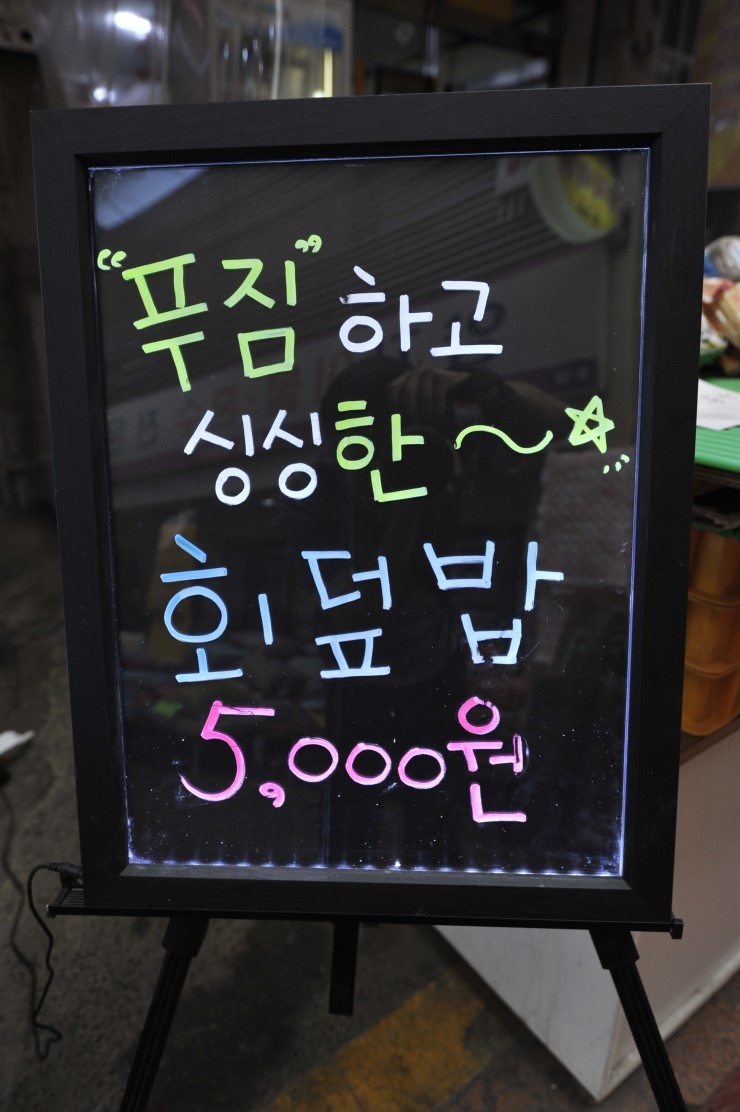 “푸짐”하고
싱싱한~☆
회덮밥
5,000원